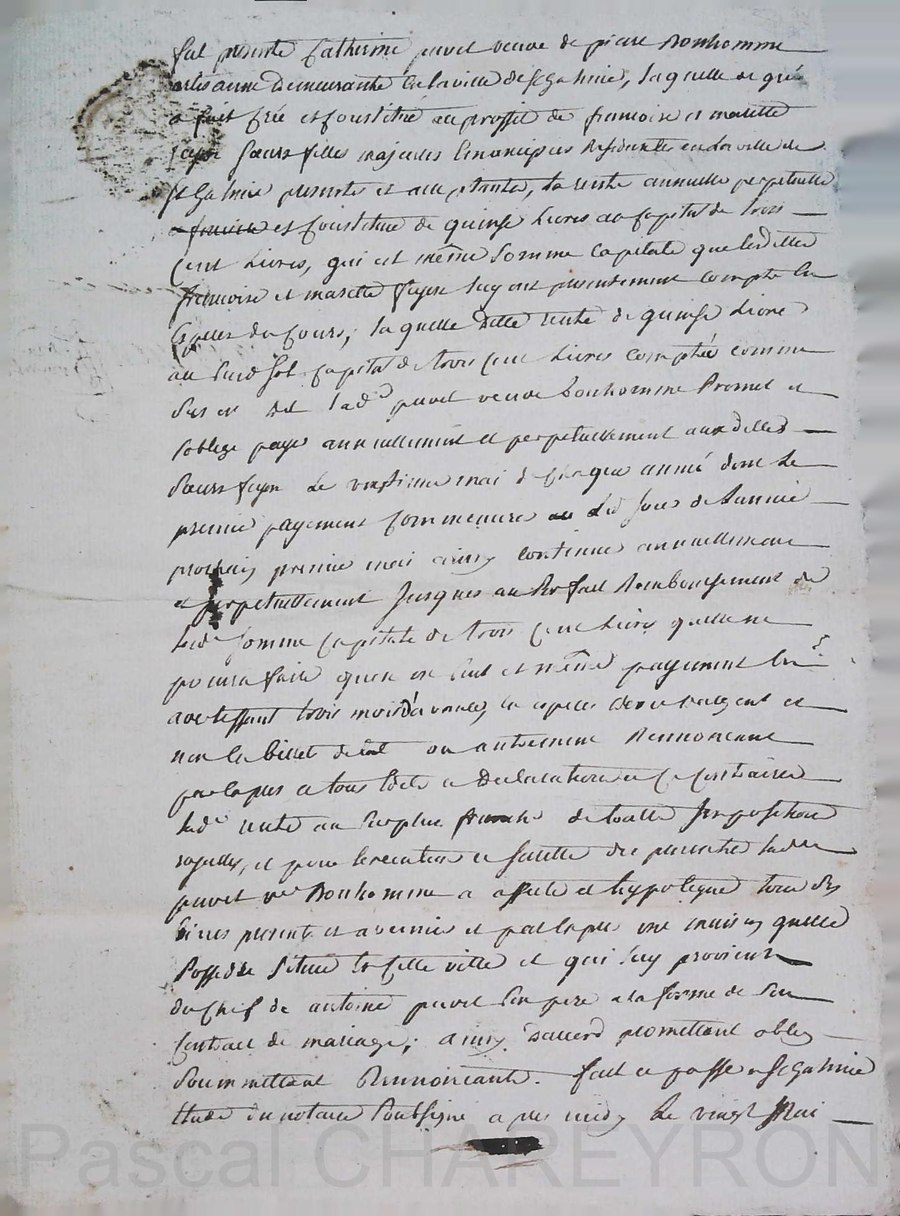 fut presente Catherine pavet veuve de pierre Bonhomme
artisanne demeurante en la ville de St Galmie, laquelle de gré
a fait créé et constitué au proffit de francoise et mariette
fayon sœurs filles majeures Emancipées Residentes en la ville de
St Galmie presentes et acceptantes, la rente annuelle perpetuelle
et constitué de quinse Livres au capital de trois
Cent Livres, qui est même somme Capitale que lesdittes
francoise et mariette fayon luy ont presentement compté En
Especes du Cours, laquelle ditte rente de quinse Livre
au susd. sol capital de trois Cent Livres comptées comme
dessus est dit lade pavet veuve bonhomme Promet et
soblige payer annuellement et perpetuellement aux dittes
sœurs fayon Le vingtieme mai de chaque année dont le
premier payement Commencera dud jour de lannée
prochain premier mai ainsy continué annuellement
et perpetuellement Jusques au Parfait Remboursement de
lade somme Capitale de trois Cent Livres quelle ne
pourra faire quen un seul et même payement En
avertissant trois mois davance, en especes dor et dargent et
non en billet de ou autrement Rennoncant
par Expres a tous Edits et Declarations a ce Contraires
lade rente au surplus franche de toutte Jmposition
royalle, et pour lexecution et suitte des presentes ladite
pavet ve Bonhomme a affecté et hypotequé tous ses
biens presents et avenir et par Expres une maison quelle
Possede située En cette ville et qui luy provient
du Chef de antoine pavet son pere a la forme de son
Contract de mariage; ainsy daccord promettant oblig
soummettant Rennoncant. fait et passé a St Galmie
Etude du notaire soussigné apres midy Le vingt Mai
Pascal CHAREYRON